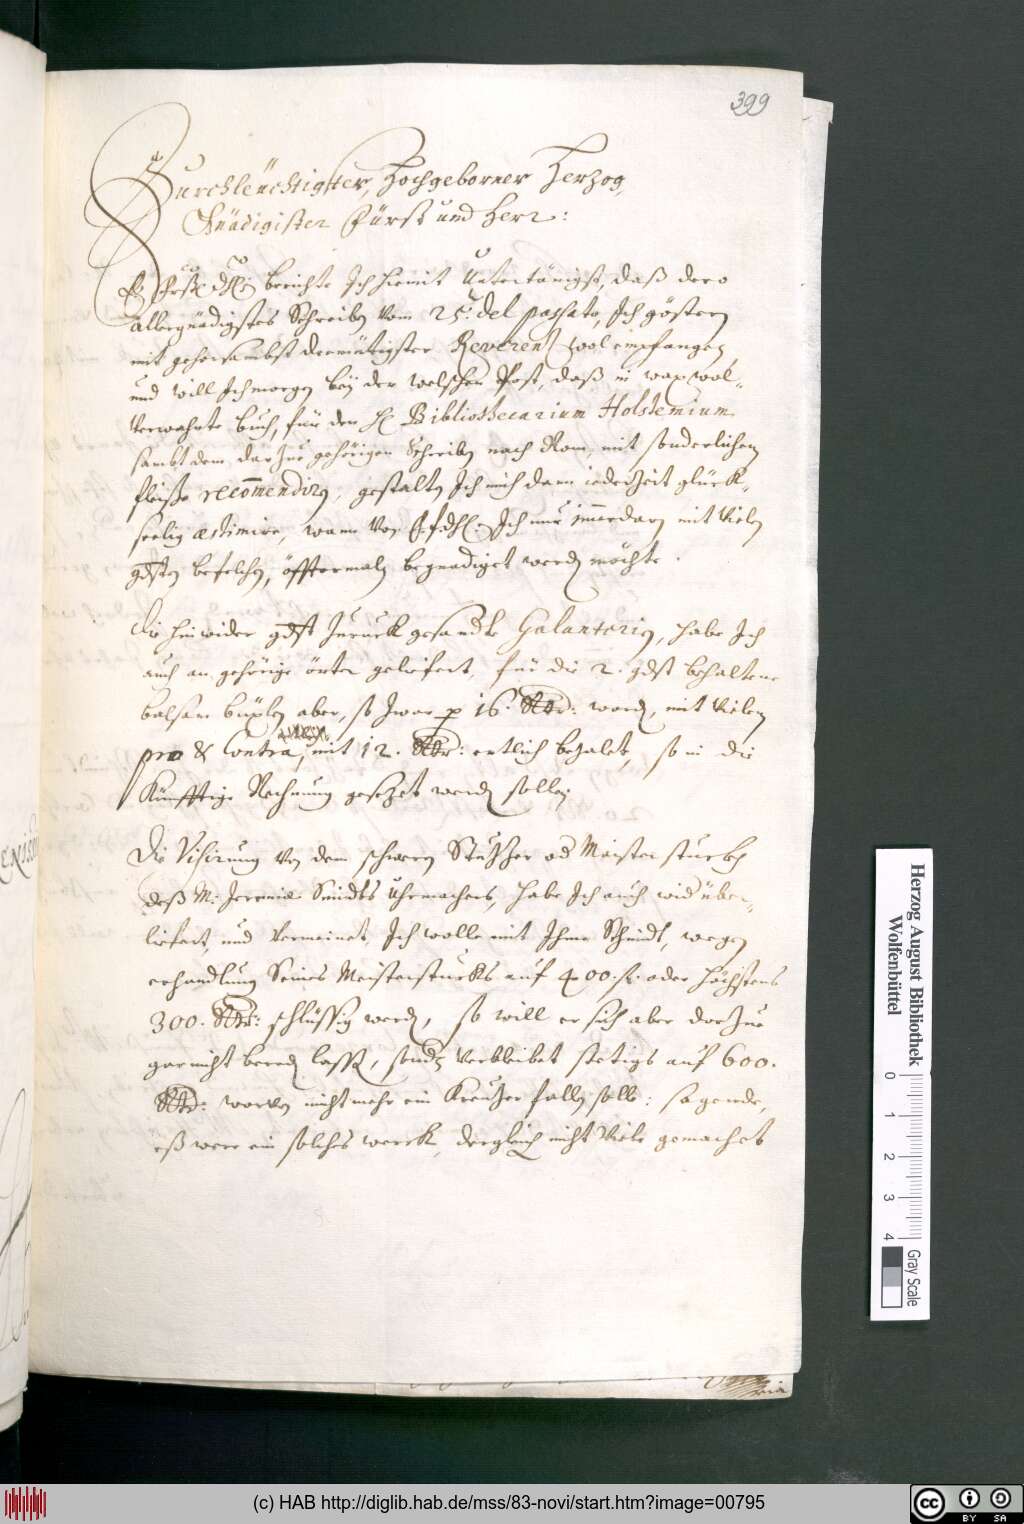 399
Durchleüchtigster, Hochgeborner Herzog,
Gnädigister Fürst und Herr:
E. Frstl. Dhl: berichte Ich hiemit Untertänigst, daß dero
allergnädigstes Schreiben vom 25. del passato, Ich gösteren
mit gehorsambst demütigster Reverentz wol empfangen,
und will Ich morgen bey der welschen Post, daß in wax wol-
verwahrte buch, für den H. Bibliothecarium Holstenium
sambt dem darzue gehörigen Schreiben nach Rom, mit sonderlichem
fleiße recom̄endiren, gestalten Ich mich dann iederzeit glück-
seelig æstimire, wann von E. F. Dhl. Ich nur im̄erdar mit vielen
gdsten befelchen, öfftermalen begnadiget werden möchte.
Die hinwider gdst zuruckgesandte Galanterien, habe Ich
auch an gehörige örter geliefert, für die 2. gdst behaltene
balsam büxlen aber, so zwar p 16. Rthr: worden, mit vielem
pro & Contra, mit 12. Rthr: entlich bezalet, so in die
Künfftige Rechnung gesezet werden sollen.
Die Visirung von dem schweren Stuzher od Maisterstuckh
deß M: Jeremiæ Smidts Uhrmachers, habe Ich auch wid über-
liefert, und vermeinet, Ich wolle mit Ihme Schmidt, wegen
erhandlung Seines Meisterstucks auf 400. fl. oder höchstens
300. Rthr: schlüssig werden, so will er sich aber darzue
gar nicht bereden lassen, sondern verbleibet stetigs auf 600.
Rthr: worvon nicht mehr ein Kreuzer fallen solle: sagende,
eß were ein solches werck, dergleich nicht viele gemachet
Herzog August Bibliothek
Wolfenbüttel
0 1 2 3 4
Gray Scale
(c) HAB http://diglib.hab.de/mss/83-novi/start.htm?image=00795
cc BY SA